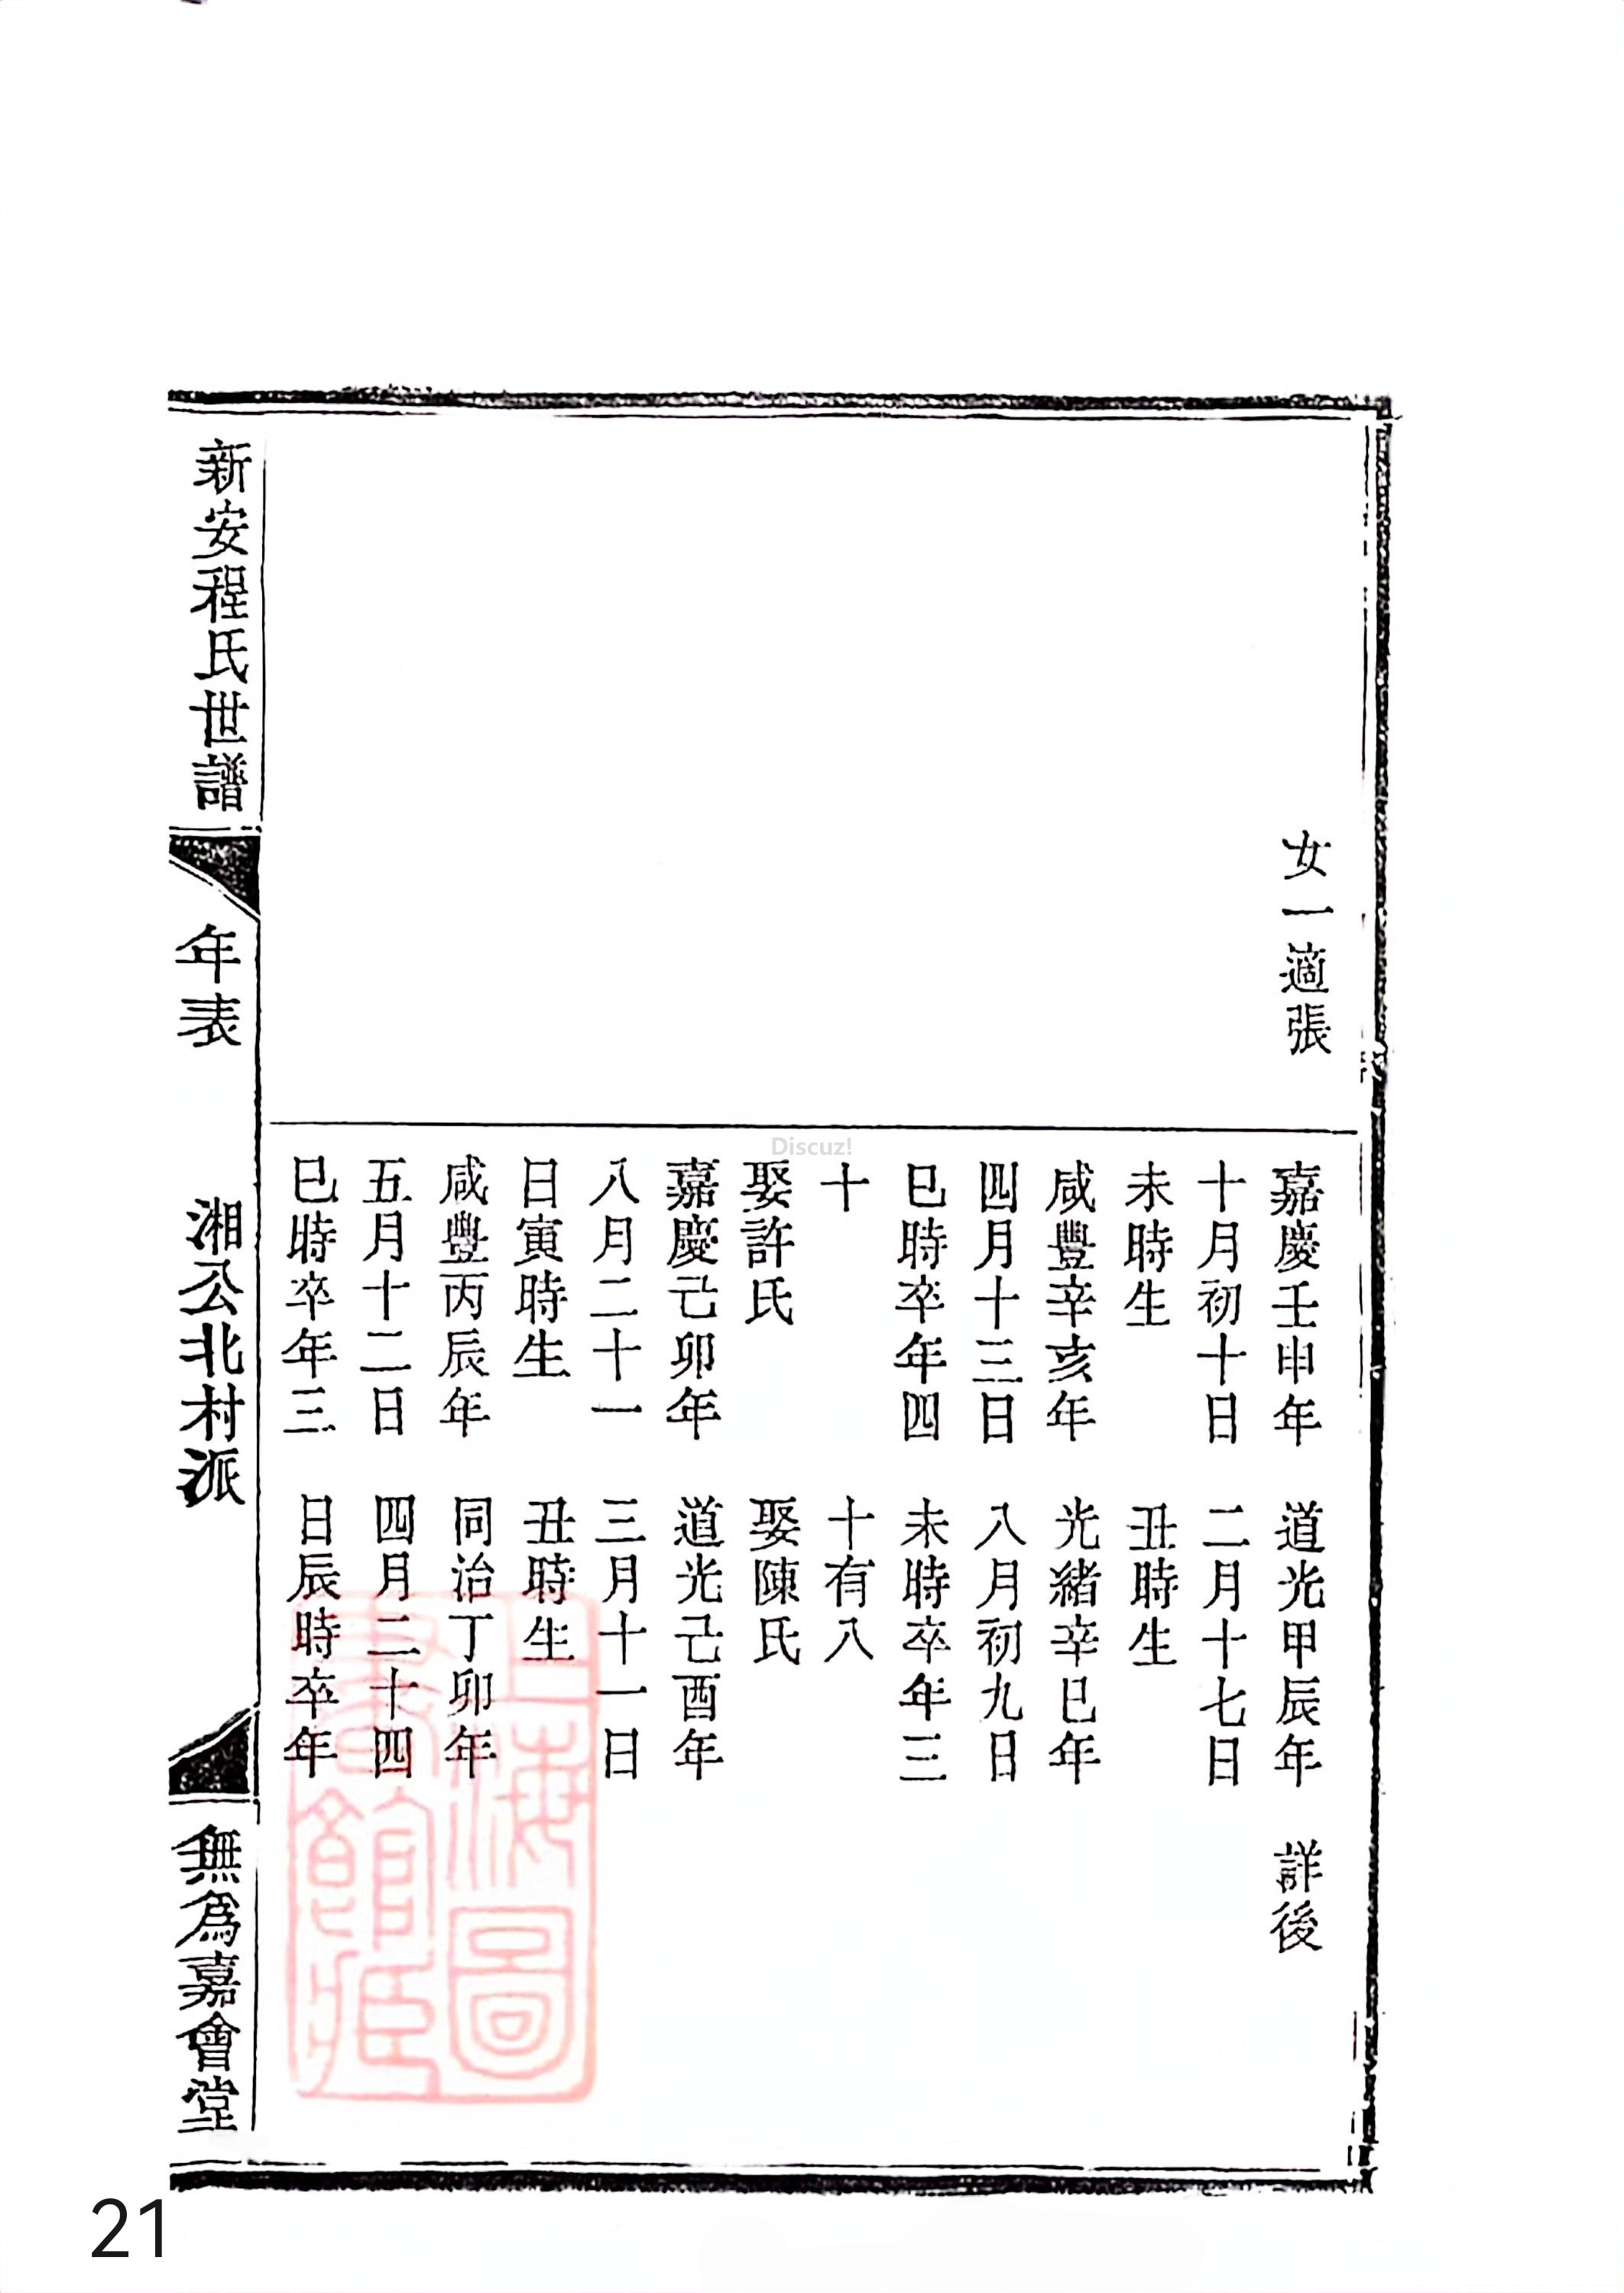 女一適張
嘉慶壬申年
十月初十日
未時生
咸豐辛亥年
四月十三日
巳時卒年四
十
娶許氏
嘉慶己卯年
八月二十一
日寅時生
咸豐丙辰年
五月十二日
巳時卒年三
道光甲辰年
二月十七日
丑時生
光緒辛巳年
八月初九日
未時卒年三
十有八
娶陳氏
道光己酉年
三月十一日
丑時生
同治丁卯年
四月二十四
日辰時卒年
詳後
新安程氏世譜
年表
湘公北村派
無為嘉會堂
上海圖
書館藏
Discuz!
21